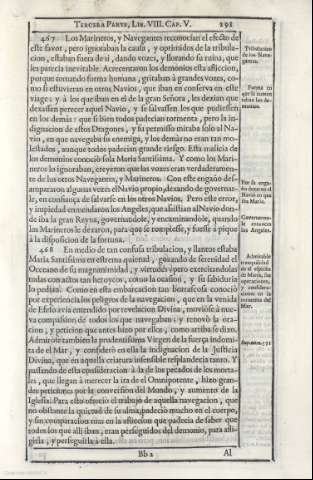 TERCERA PARTE, LIB. VIII. CAP. V. 291
467 Los Marineros, y Navegantes reconocian el efecto de
este favor, pero ignoraban la causa, y oprimidos de la tribula-
cion, estaban fuera de si, dando vozes, y llorando su ruina, que
les parecia inevitable. Acrecentaron los demonios esta afliccion,
porque tomando forma humana, gritaban à grandes vozes, co-
mo si estuvieran en otros Navios, que iban en conserva en este
viage: y à los que iban en el de la gran Señora, les dezian que
dexassen perecer aquel Navio, y se salvassen los que pudiessen
en los demàs: que si bien todos padecian tormenta, pero la in-
dignacion de estos Dragones, y su permisso miraba solo al Na-
vio, en que navegaba su enemiga, y los demàs no eran tan mo-
lestados, aunque todos padecian grande riesgo. Esta malicia de
los demonios conociò sola Maria Santissima. Y como los Mari-
neros lo ignoraban, creyeron que las vozes eran verdaderamen-
te de los otros Navegantes, y Marineros. Con este engaño des-
ampararon algunas vezes el Navio propio, dexando de governar-
le, en confiança de salvarse en los otros Navios. Pero este error,
y impiedad enmendaron los Angeles, que assistian al Navio don-
de iba la gran Reyna, governandole, y encaminandole, quando
los Marineros le dexaron, para que se rompiesse, y fuesse à pique
à la disposicion de la fortuna.
468 En medio de tan confusa tribulacion, y llantos estaba
Maria Santissima en estrema quietud, gozando de serenidad el
Occeano de su magnanimidad, y virtudes; pero exercitandolas
todas con actos tan heroycos, como la ocasion, y su sabiduria
lo pedian. Como en esta embarcacion tan borrascosa conociò
por experiencia los peligros de la navegacion, que en la venida
de Efeso avia entendido por revelacion Divina, moviòse à nue-
va compassion de todos los que navegaban; y renovò la ora-
cion, y peticion que antes hizo por ellos, como arriba se dixo.
Admiròse tambien la prudentissima Virgen de la fuerça indomi-
ta de el Mar, y considerò en ella la indignacion de la Justicia
Divina, que en aquella criatura insensible resplandecia tanto. Y
passando de esta consideracion à la de los pecados de los morta-
les, que llegan à merecer la ira de el Omnipotente, hizo gran-
des peticiones por la conversion del Mundo, y aumento de la
Iglesia. Para esto ofreciò el trabajo de aquella navegacion, que
no obstante la quietud de su alma, padeciò mucho en el cuerpo,
y sin comparacion mas en la afliccion que padecia de saber que
todos los que alli iban, eran perseguidos del demonio, para afli-
girla, y perseguirla à ella.
Bb 2 Al
Tribulacion
de los Nave-
gantes.
Forma en
que se
Por su enga-
Navio en que
iba Maria.
los Angeles.
Admirable
tranquilidad
de Maria, sus
operaciones,
tormenta del
Mar.